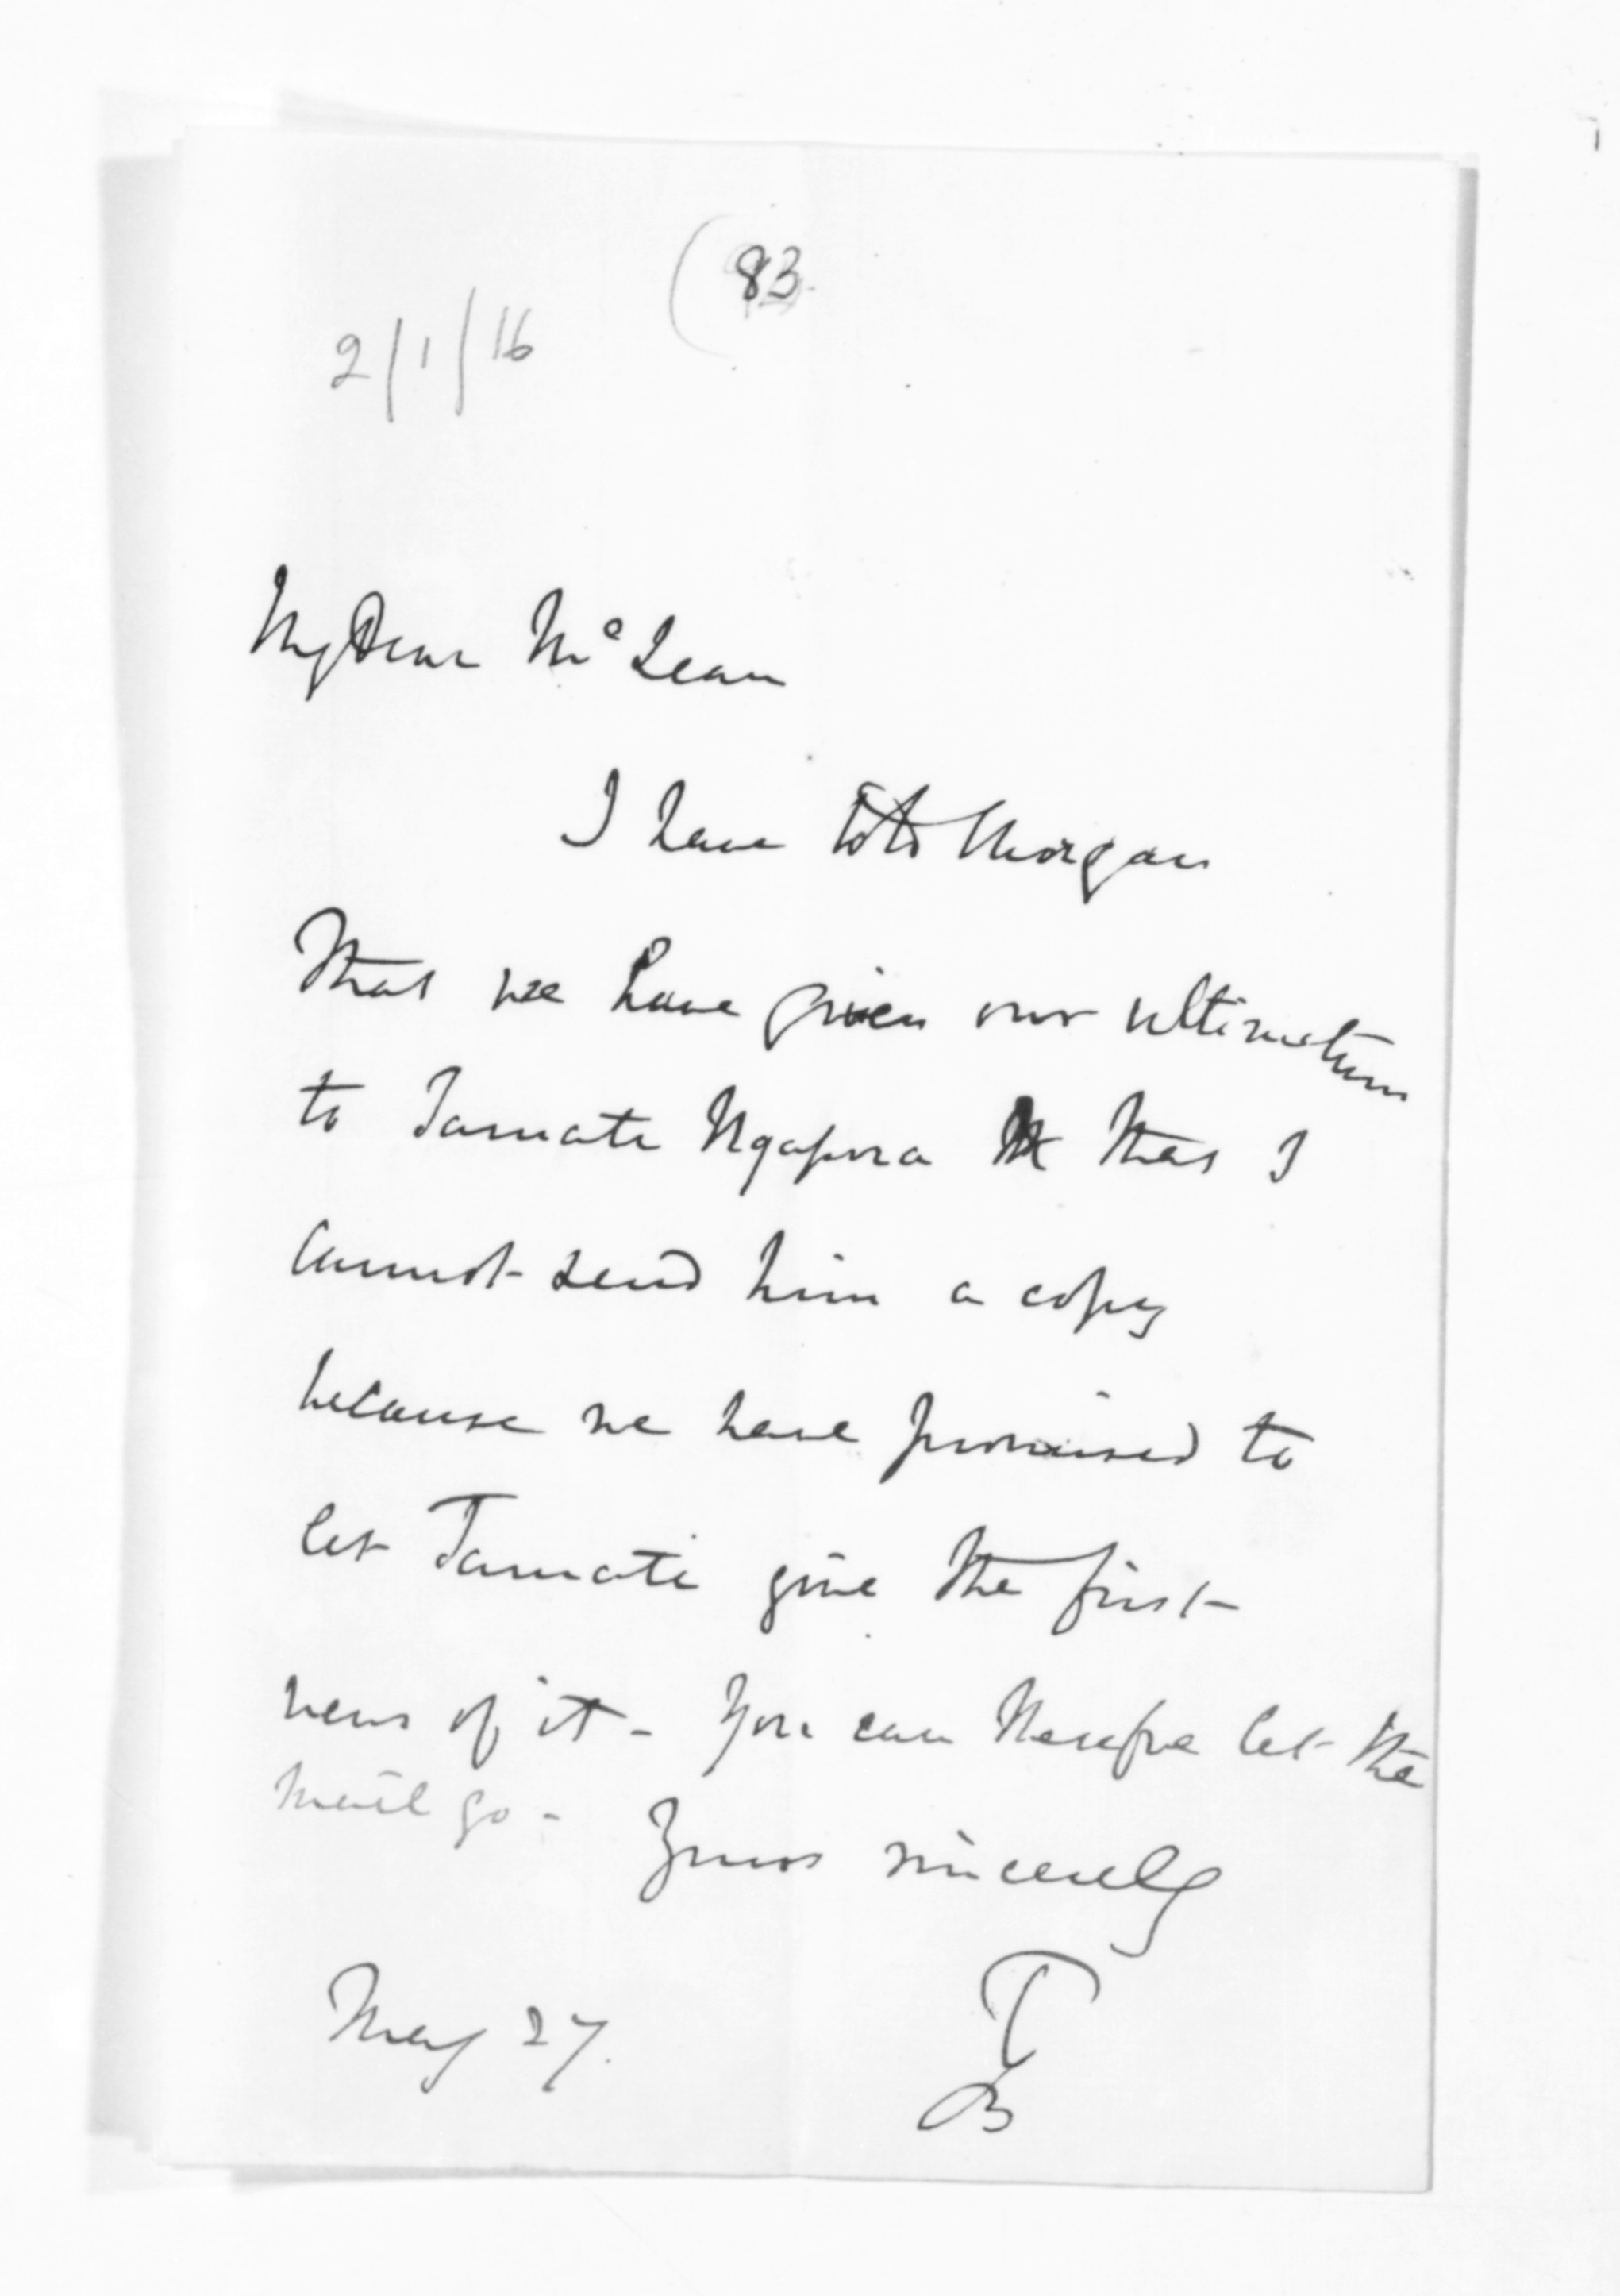 (83
2/1/16
My Dear McLean
I have told Morgan
that we have given our ultimatum
to Tamati Ngapora that I
cannot send him a copy
because we have promised to
let Tamati give the first
news of it - You can therefore let the
mail go -
Yours sincerely
May 27.
T
B